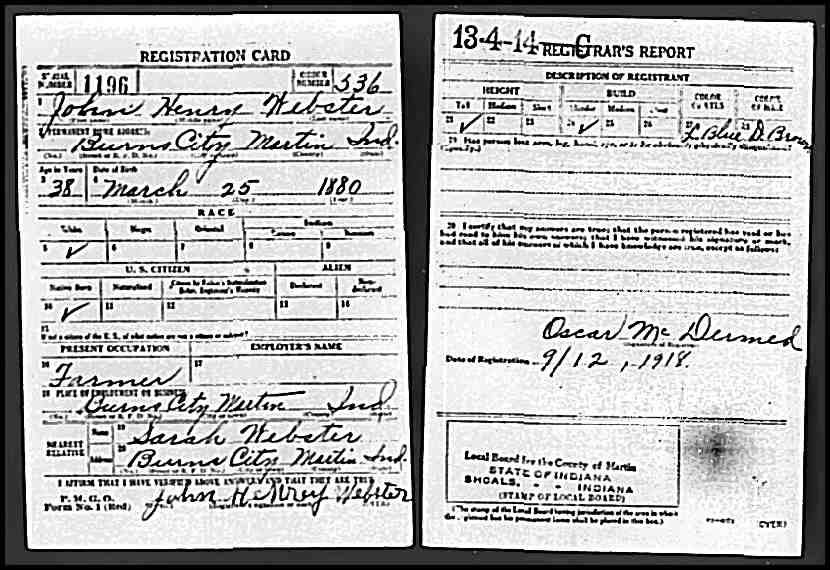 REGISTRATION CARD
SERIAL NUMBER 1196 ORDER NUMBER 336
1 John Henry Webster
(First name) (Middle name) (Last name)
2 PERMANENT HOME ADDRESS:
Burns City Martin Ind.
(No.) (Street or R. F. D. No.) (City or town) (County) (State)
Age in Years Date of Birth
3 38 4 March 25 1880
(Month.) (Day.) (Year.)
RACE
White Negro Oriental Indian
Citizen Noncitizen
5 ✓ 6 7 8 9
U. S. CITIZEN ALIEN
Native Born Naturalized Citizen by Father's Naturalization Before Registrant's Majority Declarant Non-declarant
10 ✓ 11 12 13 14
15
If not a citizen of the U. S., of what nation are you a citizen or subject?
PRESENT OCCUPATION EMPLOYER'S NAME
16 Farmer 17
18 PLACE OF EMPLOYMENT OR BUSINESS:
Burns City Martin Ind
(No.) (Street or R. F. D. No.) (County) (State)
NEAREST RELATIVE Name 19 Sarah Webster
Address 20 Burns City Martin Ind.
I AFFIRM THAT I HAVE VERIFIED ABOVE ANSWERS AND THAT THEY ARE TRUE
P. M. G. O.
Form No. 1 (Red) John HeNrey Webster
(OVER)
13-4-14-C REGISTRAR'S REPORT
DESCRIPTION OF REGISTRANT
HEIGHT BUILD COLOR OF EYES COLOR OF HAIR
Tall Medium Short Slender Medium Stout
21 ✓ 22 23 24 ✓ 25 26 27 L. Blue 28 D. Brown
29 Has person lost arm, leg, hand, eye, or is he obviously physically disqualified?
(Specify.)
30 I certify that my answers are true; that the person registered has read or has
had read to him his own answers; that I have witnessed his signature or mark,
and that all of his answers of which I have knowledge are true, except as follows:
Oscar Mc Dermed
(Signature of Registrar)
Date of Registration 9/12, 1918.
Local Board for the County of Martin
STATE OF INDIANA
SHOALS, - - INDIANA
(STAMP OF LOCAL BOARD)
(The stamp of the Local Board having jurisdiction of the area in which
the registrant has his permanent home shall be placed in this box.)
(OVER)